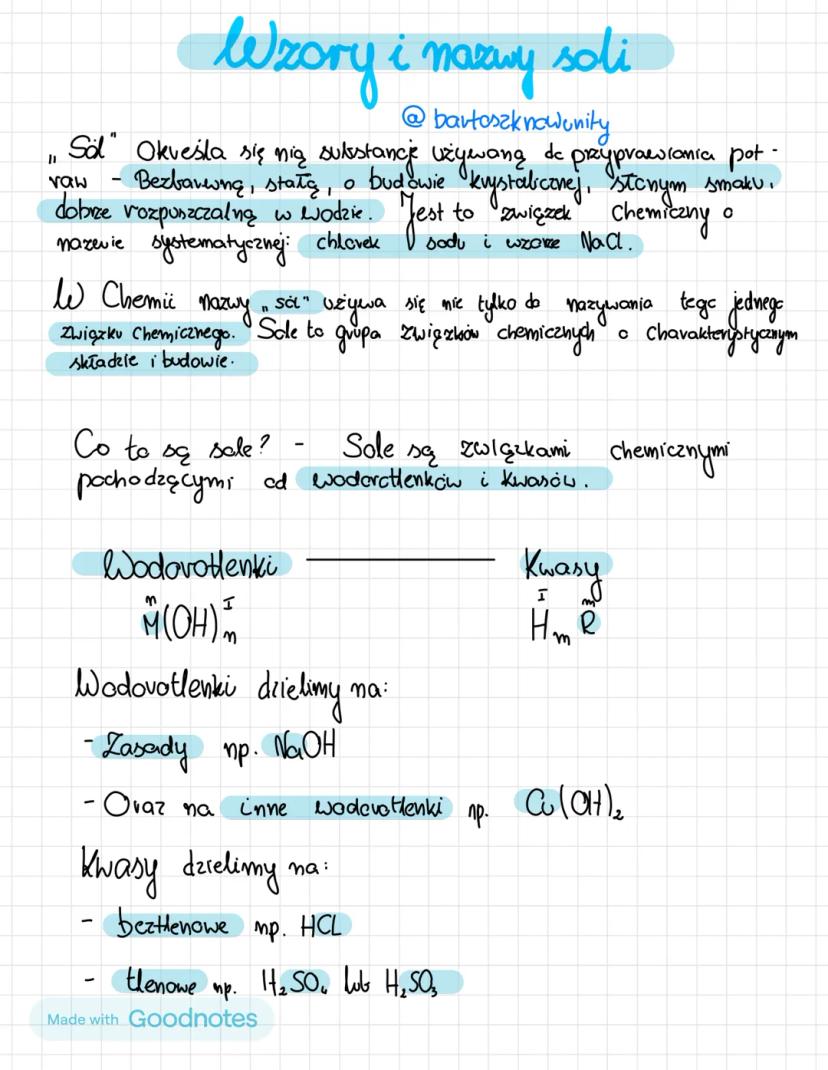 Wzory i nazwy soli
@bartoszknowunity
„Sól" Określa się nią substancję używaną do przyprawiania pot-
raw - Bezbarwną, stałą, o budowie krystalicznej, słonym smaku,
dobrze rozpuszczalną w wodzie. Jest to związek chemiczny o
nazwie systematycznej: chlorek sodu i wzorze NaCl.
W Chemii nazwy „sól" używa się nie tylko do nazywania tego jednego
związku chemicznego. Sole to grupa związków chemicznych o charakterystycznym
składzie i budowie.
Co to są sole? - Sole są związkami chemicznymi
pochodzącymi od wodorotlenków i kwasów.
Wodorotlenki ——— Kwasy
n I I m
M(OH)n HmR
Wodorotlenki dzielimy na:
- Zasady np. NaOH
- Oraz na inne wodorotlenki np. Cu(OH)₂
Kwasy dzielimy na:
- beztlenowe np. HCL
- tlenowe np. H₂SO₄ lub H₂SO₃
Made with Goodnotes